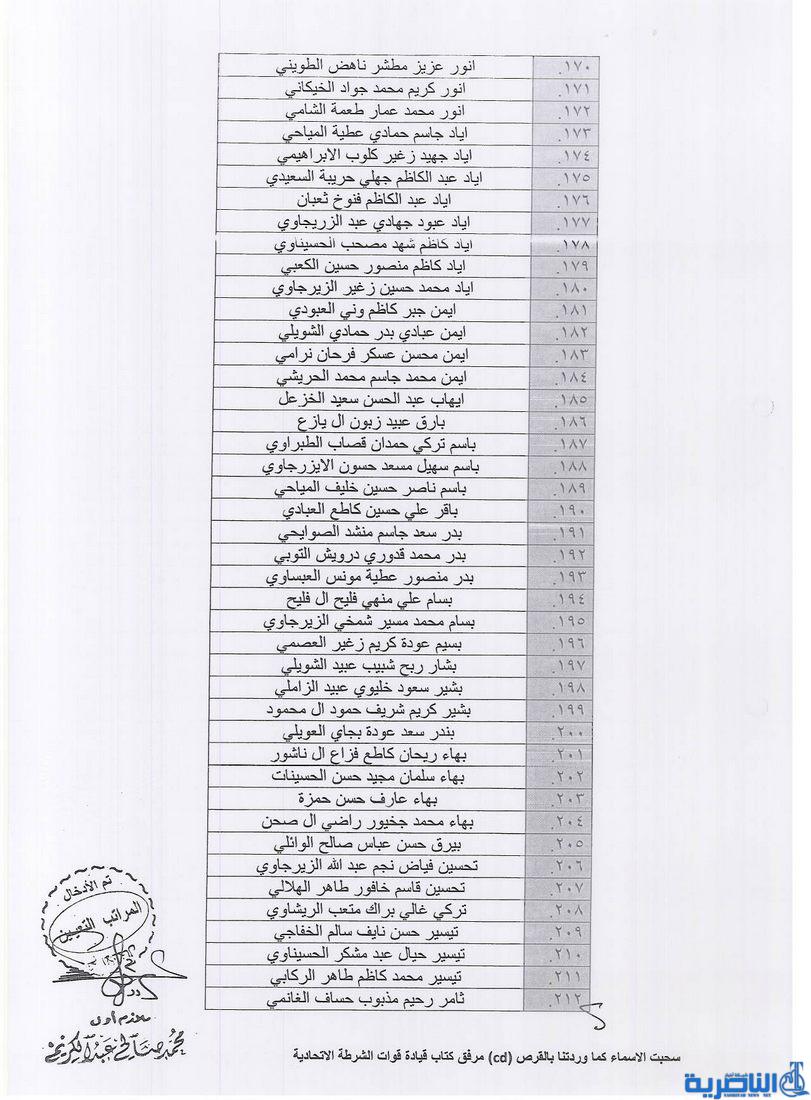 ١٧٠. انور عزيز مطشر ناهض الطويني
١٧١. انور كريم محمد جواد الخيكاني
١٧٢. انور محمد عمار طعمة الشامي
١٧٣. اياد جاسم حمادي عطية المياحي
١٧٤. اياد جهيد زغير كلوب الابراهيمي
١٧٥. اياد عبد الكاظم جهلي حريبة السعيدي
١٧٦. اياد عبد الكاظم فنوخ ثعبان
١٧٧. اياد عبود جهادي عبد الزريجاوي
١٧٨. اياد كاظم شهد مصحب الحسيناوي
١٧٩. اياد كاظم منصور حسين الكعبي
١٨٠. اياد محمد حسين زغير الزيرجاوي
١٨١. ايمن جبر كاظم وني العبودي
١٨٢. ايمن عبادي بدر حمادي الشويلي
١٨٣. ايمن محسن عسكر فرحان نرامي
١٨٤. ايمن محمد جاسم محمد الحريشي
١٨٥. ايهاب عبد الحسن سعيد الخزعل
١٨٦. بارق عبيد زبون ال يازع
١٨٧. باسم تركي حمدان قصاب الطبراوي
١٨٨. باسم سهيل مسعد حسون الايزرجاوي
١٨٩. باسم ناصر حسين خليف المياحي
١٩٠. باقر علي حسين كاطع العبادي
١٩١. بدر سعد جاسم منشد الصوايحي
١٩٢. بدر محمد قدوري درويش التوبي
١٩٣. بدر منصور عطية مونس العبساوي
١٩٤. بسام علي منهي فليح ال فليح
١٩٥. بسام محمد مسير شمخي الزيرجاوي
١٩٦. بسيم عودة كريم زغير العصمي
١٩٧. بشار ربح شبيب عبيد الشويلي
١٩٨. بشير سعود خليوي عبيد الزاملي
١٩٩. بشير كريم شريف حمود ال محمود
٢٠٠. بندر سعد عودة بجاي العويلي
٢٠١. بهاء ريحان كاطع فزاع ال ناشور
٢٠٢. بهاء سلمان مجيد حسن الحسينات
٢٠٣. بهاء عارف حسن حمزة
٢٠٤. بهاء محمد جخيور راضي ال صحن
٢٠٥. بيرق حسن عباس صالح الوائلي
٢٠٦. تحسين فياض نجم عبد الله الزيرجاوي
٢٠٧. تحسين قاسم خافور طاهر الهلالي
٢٠٨. تركي غالي براك متعب الريشاوي
٢٠٩. تيسير حسن نايف سالم الخفاجي
٢١٠. تيسير حيال عبد مشكر الحسيناوي
٢١١. تيسير محمد كاظم طاهر الركابي
٢١٢. ثامر رحيم مذبوب حساف الغانمي
تم الأدخال
المراتب التعيين
ملازم أول
محمد صالح عبد الكريم
سحبت الاسماء كما وردتنا بالقرص (cd) مرفق كتاب قيادة قوات الشرطة الاتحادية
شبكة أخبار
الناصرية
NASIRIYAH NEWS NET